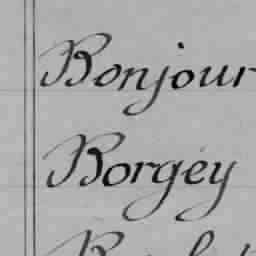 Bonjour
Borgéy